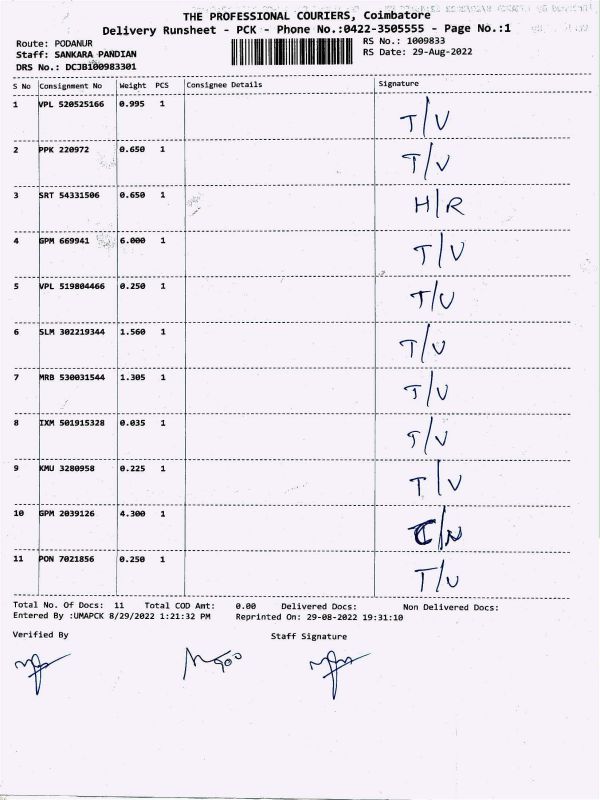 THE PROFESSIONAL COURIERS, Coimbatore
Delivery Runsheet - PCK - Phone No.:0422-3505555 - Page No.:1
Route: PODANUR
RS No.: 1009833
Staff: SANKARA PANDIAN
RS Date: 29-Aug-2022
DRS No.: DCJB100983301
S No Consignment No Weight PCS Consignee Details Signature
1 VPL 520525166 0.995 1 T/V
2 PPK 220972 0.650 1 T/V
3 SRT 54331506 0.650 1 H/R
4 GPM 669941 6.000 1 T/V
5 VPL 519804466 0.250 1 T/V
6 SLM 302219344 1.560 1 T/V
7 MRB 530031544 1.305 1 T/V
8 IXM 501915328 0.035 1 T/V
9 KMU 3280958 0.225 1 T/V
10 GPM 2039126 4.300 1
11 PON 7021856 0.250 1 T/V
Total No. Of Docs: 11 Total COD Amt: 0.00 Delivered Docs: Non Delivered Docs:
Entered By :UMAPCK 8/29/2022 1:21:32 PM Reprinted On: 29-08-2022 19:31:10
Verified By Staff Signature